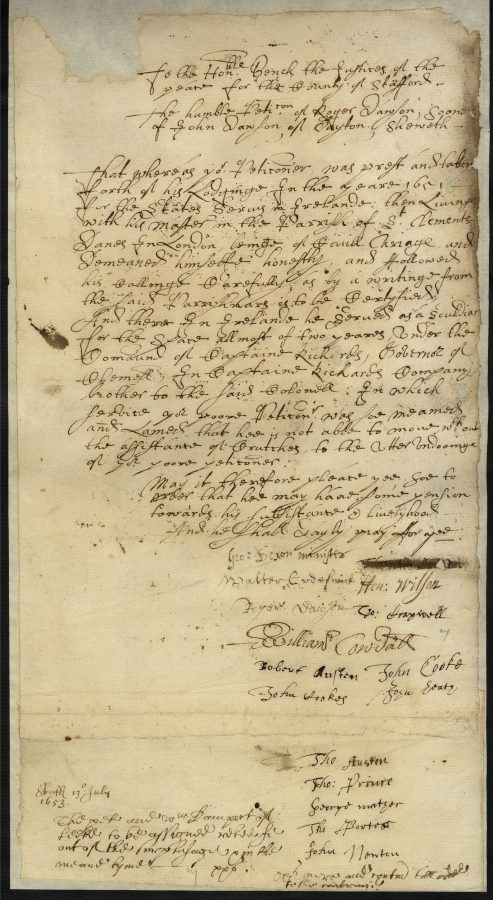 To the Hon:ble Bench the Justices of the
peace for the County of Stafford
The humble Peticon of Roger Dawson, Sonne
of John Dawson, of Sheweth
That whereas yor Peticoner was prest and taken
forth of his Lodginge In the yeare 1651
for the States Servis in Irelande, then Livinge
with his Master in the Parrish of St Clements
Danes In London, beinge of Civill Cariage, and
Demeaned himselfe honestly, and followed
his Callinge Carefully, as by a writinge from
the said Parrishnars is to be Certyfied,
And there In Irelande he Served as a Souldier
for the Space allmost of two yeares, Under the
Comaund of Captaine Rickards, Govenor of
In Captaine Rickards Company
brother to the said Colonell: In which
service yor poore Peticonr was soe meamed
and Lamed, that hee is not able to move wthout
the assistance of Crutches, to the Utter Undooinge
of yor poore peticoner:
May it therefore please yee soe to
order that hee may have some pension
towards his subsistance & livelyhood
And he shall dayly pray for yee
Geo: minister
Walter Hen: Wilson
Roger Dawson Tho:
William Cowdall
Robert Austen John Cooke
John Rookes
Tho Austen
Tho: Prince
George
Tho Porter
John Newton
13o July
1653
The peticoner
to be assigned
out of the
meane tyme
more and
to the contrary